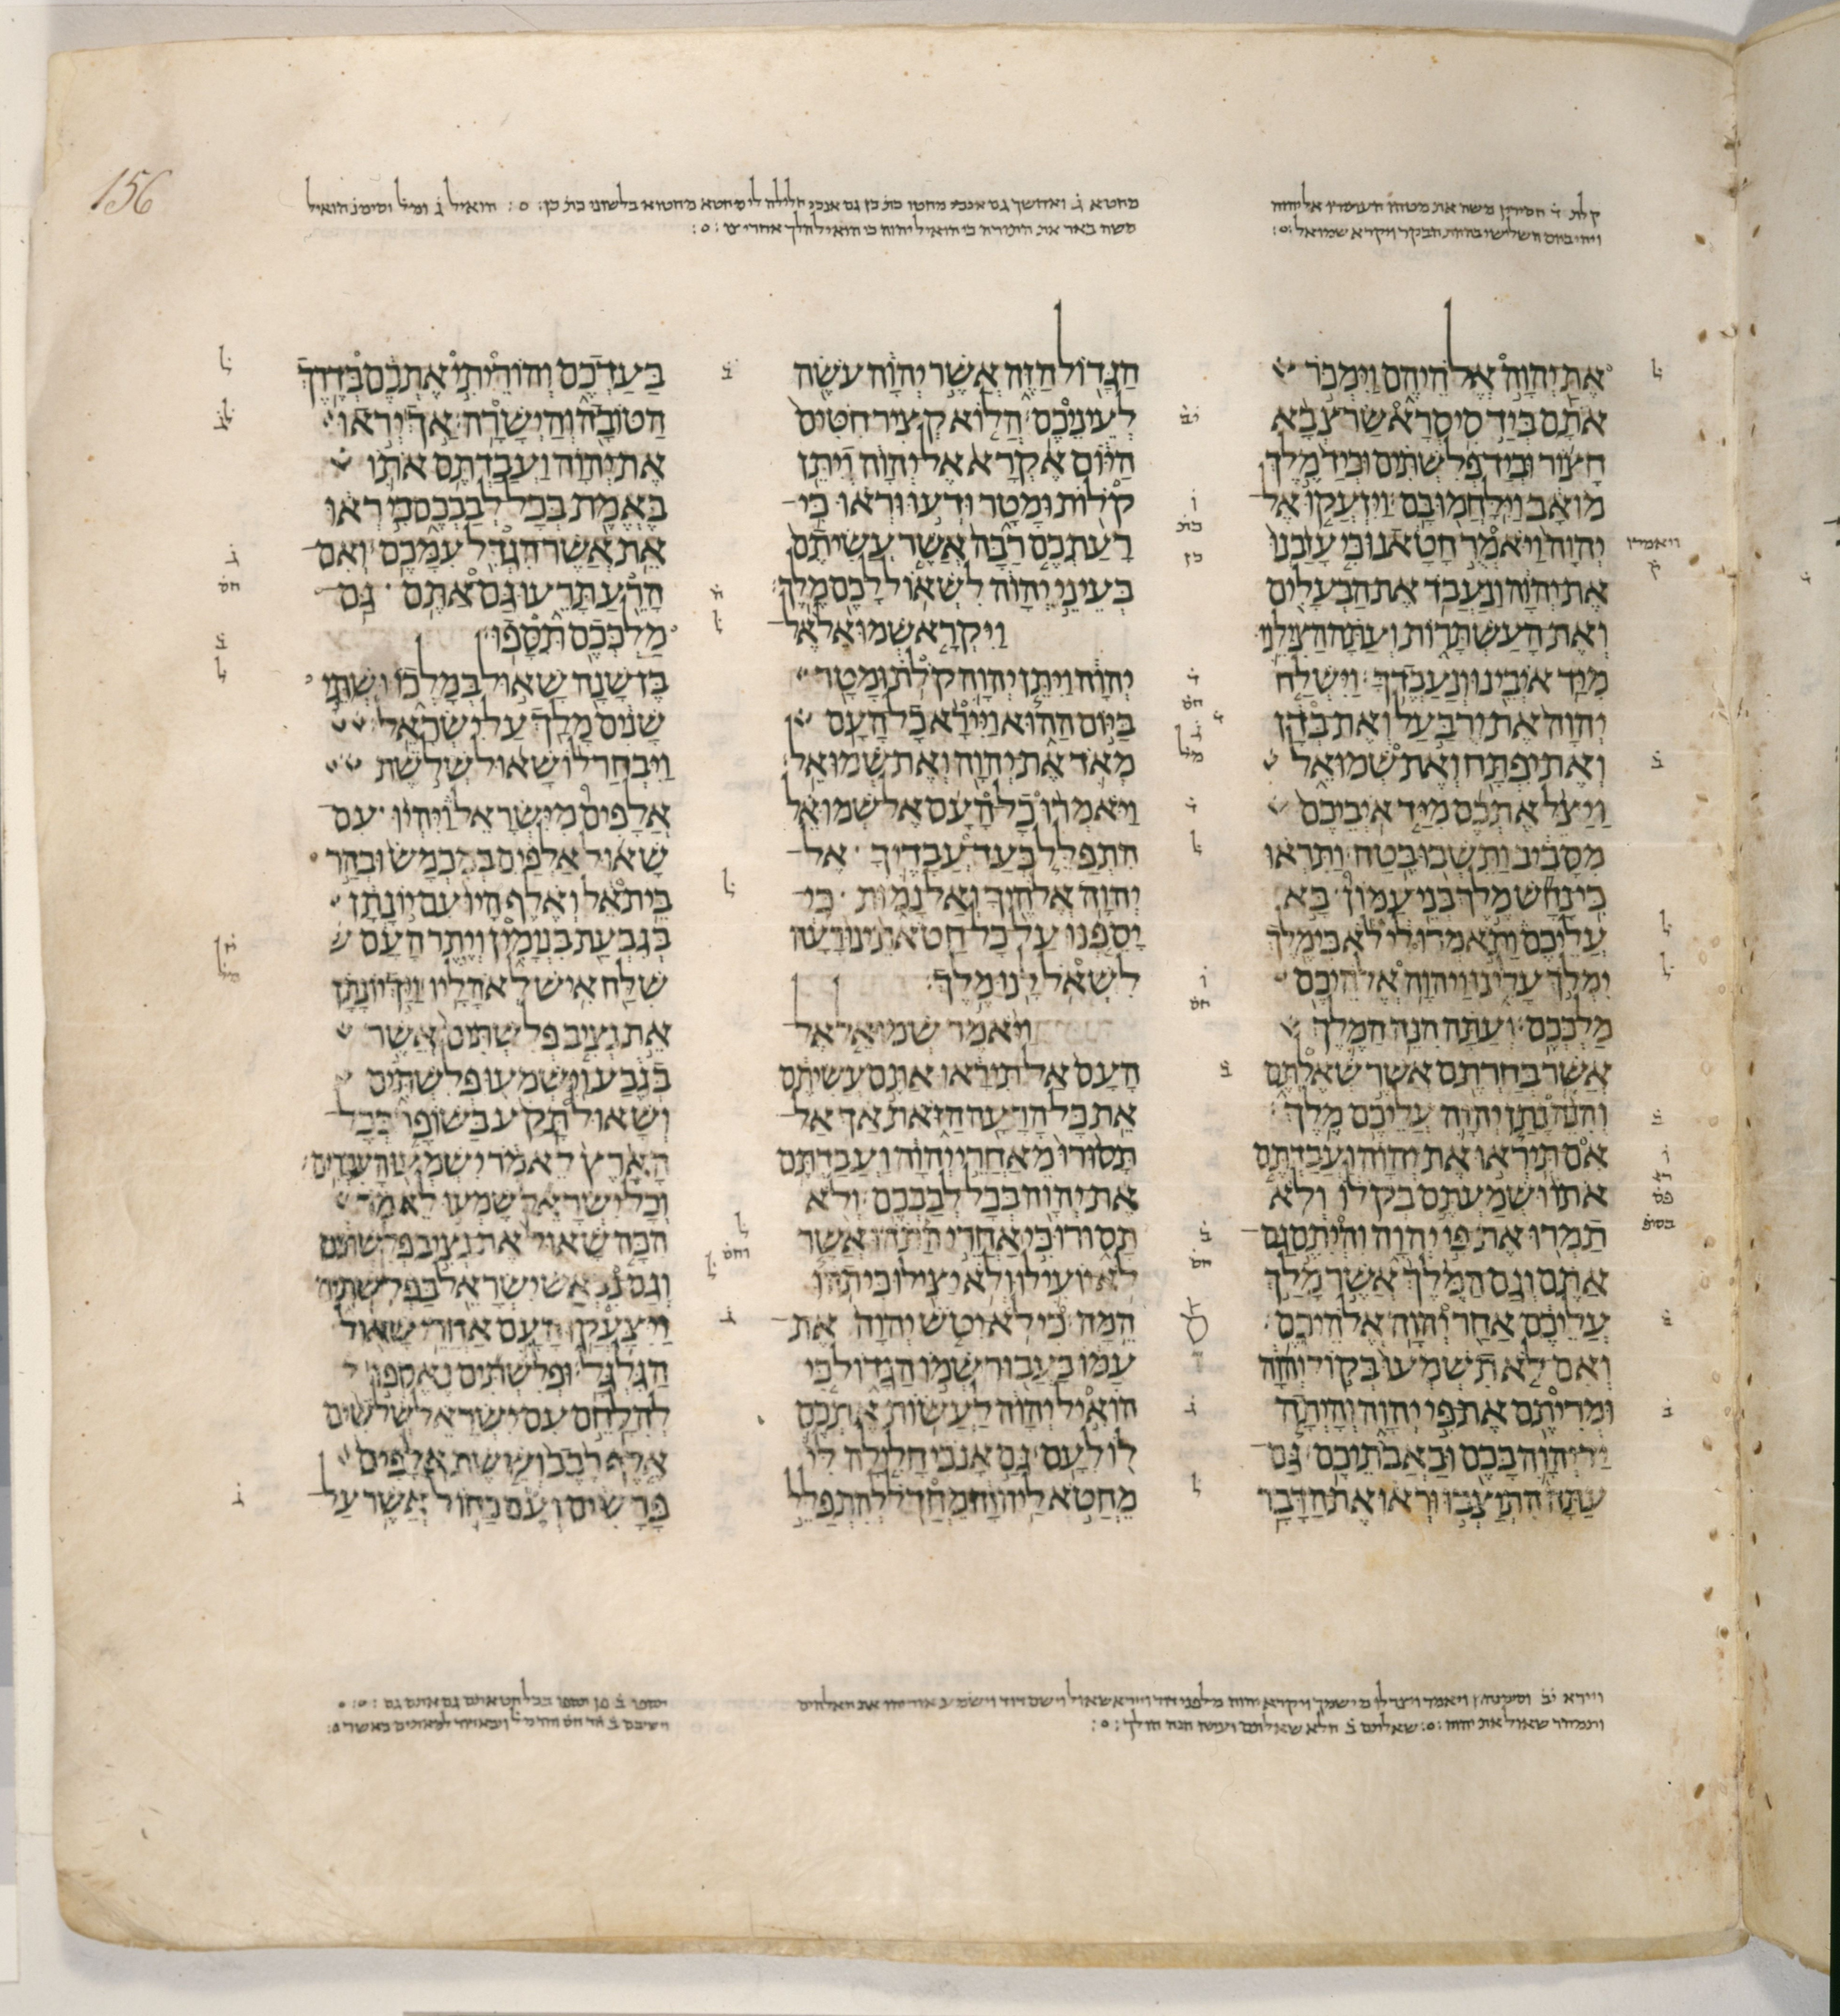 156
קלת ד חסירין משה את מטהו העתירו אל יהוה
ויהי ביום השלישי בהית הבקר ויקרא שמואל
מחטא ג ואחשך גם אנכי מחטו כת כן גם אנכי חלילה לי מחטא מחטוא בלשהני כת כן הואיל ג ומל וסימנ הואיל
משה באר את התורה כי הואיל יהוה כי הואיל הלך אחרי צו
את יהוה אלהיהם וימכר
אתם ביד סיסרא שר צבא
חצור וביד פלשתים וביד מלך
מואב וילחמו בם ויזעקו אל
יהוה ויאמר חטאנו כי עזבנו
את יהוה ונעבד את הבעלים
ואת העשתרות ועתה הצילנו
מיד איבינו ונעבדך וישלח
יהוה את ירבעל ואת בדן
ואת יפתח ואת שמואל
ויצל אתכם מיד איביכם
מסביב ותשבו בטח ותראו
כי נחש מלך בני עמון בא
עליכם ותאמרו לי לא כי מלך
ימלך עלינו ויהוה אלהיכם
מלככם ועתה הנה המלך
אשר בחרתם אשר שאלתם
והנה נתן יהוה עליכם מלך
אם תיראו את יהוה ועבדתם
אתו ושמעתם בקלו ולא
תמרו את פי יהוה והיתם גם
אתם וגם המלך אשר מלך
עליכם אחר יהוה אלהיכם
ואם לא תשמעו בקול יהוה
ומריתם את פי יהוה והיתה
יד יהוה בכם ובאבתיכם גם
עתה התיצבו וראו את הדבר
ויאמרו
ק
הגדול הזה אשר יהוה עשה
לעיניכם הלוא קציר חטים
היום אקרא אל יהוה ויתן
קלות ומטר ודעו וראו כי
רעתכם רבה אשר עשיתם
בעיני יהוה לשאול לכם מלך
ויקרא שמואל אל
יהוה ויתן יהוה קלת ומטר
ביום ההוא ויירא כל העם
מאד את יהוה ואת שמואל
ויאמרו כל העם אל שמואל
התפלל בעד עבדיך אל
יהוה אלהיך ואל נמות כי
יספנו על כל חטאתינו רעה
לשאל לנו מלך
ויאמר שמואל אל
העם אל תיראו אתם עשיתם
את כל הרעה הזאת אך אל
תסורו מאחרי יהוה ועבדתם
את יהוה בכל לבבכם ולא
תסורו כי אחרי התהו אשר
לא יועילו ולא יצילו כי תהו
המה כי לא יטש יהוה את
עמו בעבור שמו הגדול כי
הואיל יהוה לעשות אתכם
לו לעם גם אנכי חלילה לי
מחטא ליהוה מחדל להתפלל
בעדכם והוריתי אתכם בדרך
הטובה והישרה אך יראו
את יהוה ועבדתם אתו
באמת בכל לבבכם כי ראו
את אשר הגדל עמכם ואם
הרע תרעו גם אתם גם
מלככם תספו
בן שנה שאול במלכו ושתי
שנים מלך על ישראל
ויבחר לו שאול שלשת
אלפים מישראל ויהיו עם
שאול אלפים במכמש ובהר
בית אל ואלף היו עם יונתן
בגבעת בנימין ויתר העם
שלח איש לאהליו ויך יונתן
את נציב פלשתים אשר
בגבע וישמעו פלשתים
ושאול תקע בשופר בכל
הארץ לאמר ישמעו העברים
וכל ישראל שמעו לאמר
הכה שאול את נציב פלשתים
וגם נבאש ישראל בפלשתים
ויצעקו העם אחרי שאול
הגלגל ופלשתים נאספו
להלחם עם ישראל שלשים
אלף רכב וששת אלפים
פרשים ועם כחול אשר על
ויירא יב
ותמהר שאול את יהוה שאלתם ב הלא שאלתם ועתה הנה המלך
תספו ב פן תספו בכל חטאתם גם אתם גם